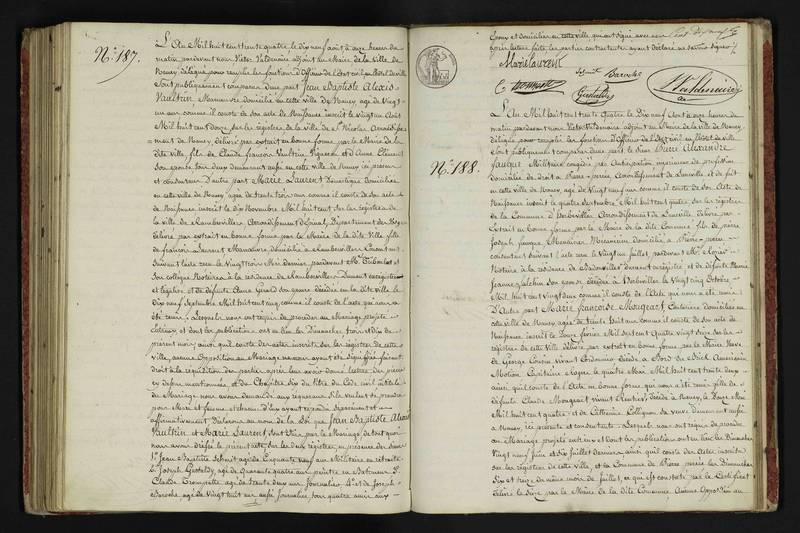 N.º 187.
L'An Mil huit cent trente quatre le dix neuf août à onze heures du
matin pardevant nous Victor Valdenaire adjoint au Maire de la ville de
Nancy délégué pour remplir les fonctions d'Officier de l'Etat civil en l'hôtel de ville
sont publiquement comparus d'une part Jean Baptiste Alexis
Vaultrin domicilié en cette ville de Nancy agé de vingt
un ans comme il conste de son acte de Naissance inscrit le vingt un Août
Mil huit cent douze sur les registres de la ville de St Nicolas arrondisse
ment de Nancy délivré par extrait en bonne forme par le Maire de la
dite ville fils de Claude françois Vaultrin Vigneron et d'Anne Clément
son épouse tous deux demeurant aussi en cette ville de Nancy ici présents
et consentans D'autre part Marie Laurent Domestique domiciliée
en cette ville de Nancy agée de trente trois ans comme il conste de son acte
de Naissance inscrit le dix Novembre Mil huit cent sur les registres de
la ville de Rambervillers arrondissement d'Epinal, Département des Vosges
délivré par extrait en bonne forme par le Maire de la dite Ville fille
de françois Laurent Manœuvre domicilié à Rambervillers Consentant
suivant l'acte reçu le vingt trois Mai dernier pardevant Me
son collègue Notaires à la résidence de Rambervillers Dument enregistré
et légalisé et de défunte Anne Gerard son épouse décédée en la dite ville le
Dix neuf Septembre Mil huit cent cinq comme il conste de l'acte qui nous a
été remis. Lesquels nous ont requis de procéder au Mariage projeté
entr'eux et dont les publications ont eu lieu les Dimanches trois et Dix du
présent mois ainsi qu'il conste des actes inscrits sur les registres de cette
ville, aucune Opposition au Mariage ne nous ayant été signifiée faisant
droit à la réquisition des parties après leur avoir donné lecture des pièces
cy dessus mentionnées, et du Chapitre Six du titre du Code civil intitulé
du Mariage nous avons demandé aux requerans s'ils veulent se prendre
pour Mari et femme et chacun d'eux ayant répondu séparément et
affirmativement Déclarons au nom de la Loi que Jean Baptiste Alexis
Vaultrin et Marie Laurent sont Unis par le Mariage de tout quoi
nous avons dressé le présent acte sur les deux registres en présence des Sieurs
1º Jean Baptiste Schmit agé de Cinquante neuf ans Militaire en retraite
2º Joseph Gestaldy agé de quarante quatre ans peintre en Batimens 3º
Claude Trompette agé de trente deux ans Journalier, 4º et de Joseph
Baroche agé de vingt huit ans aussi Journalier tous quatre amis aux
Epoux et domiciliés en cette ville, qui ont signé avec nous
après lecture faite, les parties contractantes ayant déclaré ne savoir signer
Marie laurent
Schmit
Baroche
Trompette
Gestaldy
Valdenaire
N.º 188.
L'An Mil huit cent trente Quatre le Dix neuf Août à onze heures du
matin pardevant nous Victor Valdenaire adjoint au Maire de la ville de Nancy,
délégué pour remplir les fonctions d'Officier de l'Etat civil en l'hôtel de ville
sont publiquement comparus d'une part le Sieur Pierre Alexandre
Militaire congédié par Anticipation menuisier de profession
domicilié de droit à Pierre-percée Arrondissement de Lunéville et de fait
en cette ville de Nancy, agé de Vingt neuf ans comme il conste de son Acte de
Naissance inscrit le quatre Septembre Mil huit cent quatre, sur les registres
de la Commune de Badonviller Arrondissement de Lunéville délivré par
Extrait en bonne forme par le Maire de la dite Commune fils de pierre
Joseph domicilié à Pierre-percée
consentant suivant l'acte reçu le Vingt un Juillet pardevant Me
Notaire à la résidence de Badonviller dument enregistré et de défunte Marie
Jeanne son épouse décédée à Badonviller le Vingt cinq Octobre
Mil huit cent vingt deux comme il conste de l'Acte qui nous a été remis
D'autre part Marie Françoise Mougeart Couturière domiciliée en
cette ville de Nancy agée de trente huit ans comme il conste de son acte de
Naissance inscrit le Douze février Mil sept cent Quatre vingt seize sur les
registres de cette Ville délivré par extrait en bonne forme par le Maire Veuve
de George Cousin vivant Cordonnier décédé à Bord du Brick Americain
Motion Capitaine le quatre Mai Mil huit cent trente deux
ainsi qu'il conste de l'Acte en bonne forme qui nous a été remis fille de
défunts Claude Mougeart vivant Rentier, décédé à Nancy, le Douze Mai
Mil huit cent quatre et de Catherine Collignon sa veuve demeurant aussi
à Nancy ici présente et consentante. Lesquels nous ont requis de procéder
au Mariage projeté entr'eux et dont les publications ont eu lieu les Dimanches
Vingt neuf Juin et Six Juillet dernier ainsi qu'il conste des Actes inscrits
sur les registres de cette ville, et en la Commune de Pierre percée les Dimanches
Six et treize du même mois de Juillet, ce qui est constaté par le Certificat
délivré le Seize par le Maire de la dite Commune Aucune Opposition au